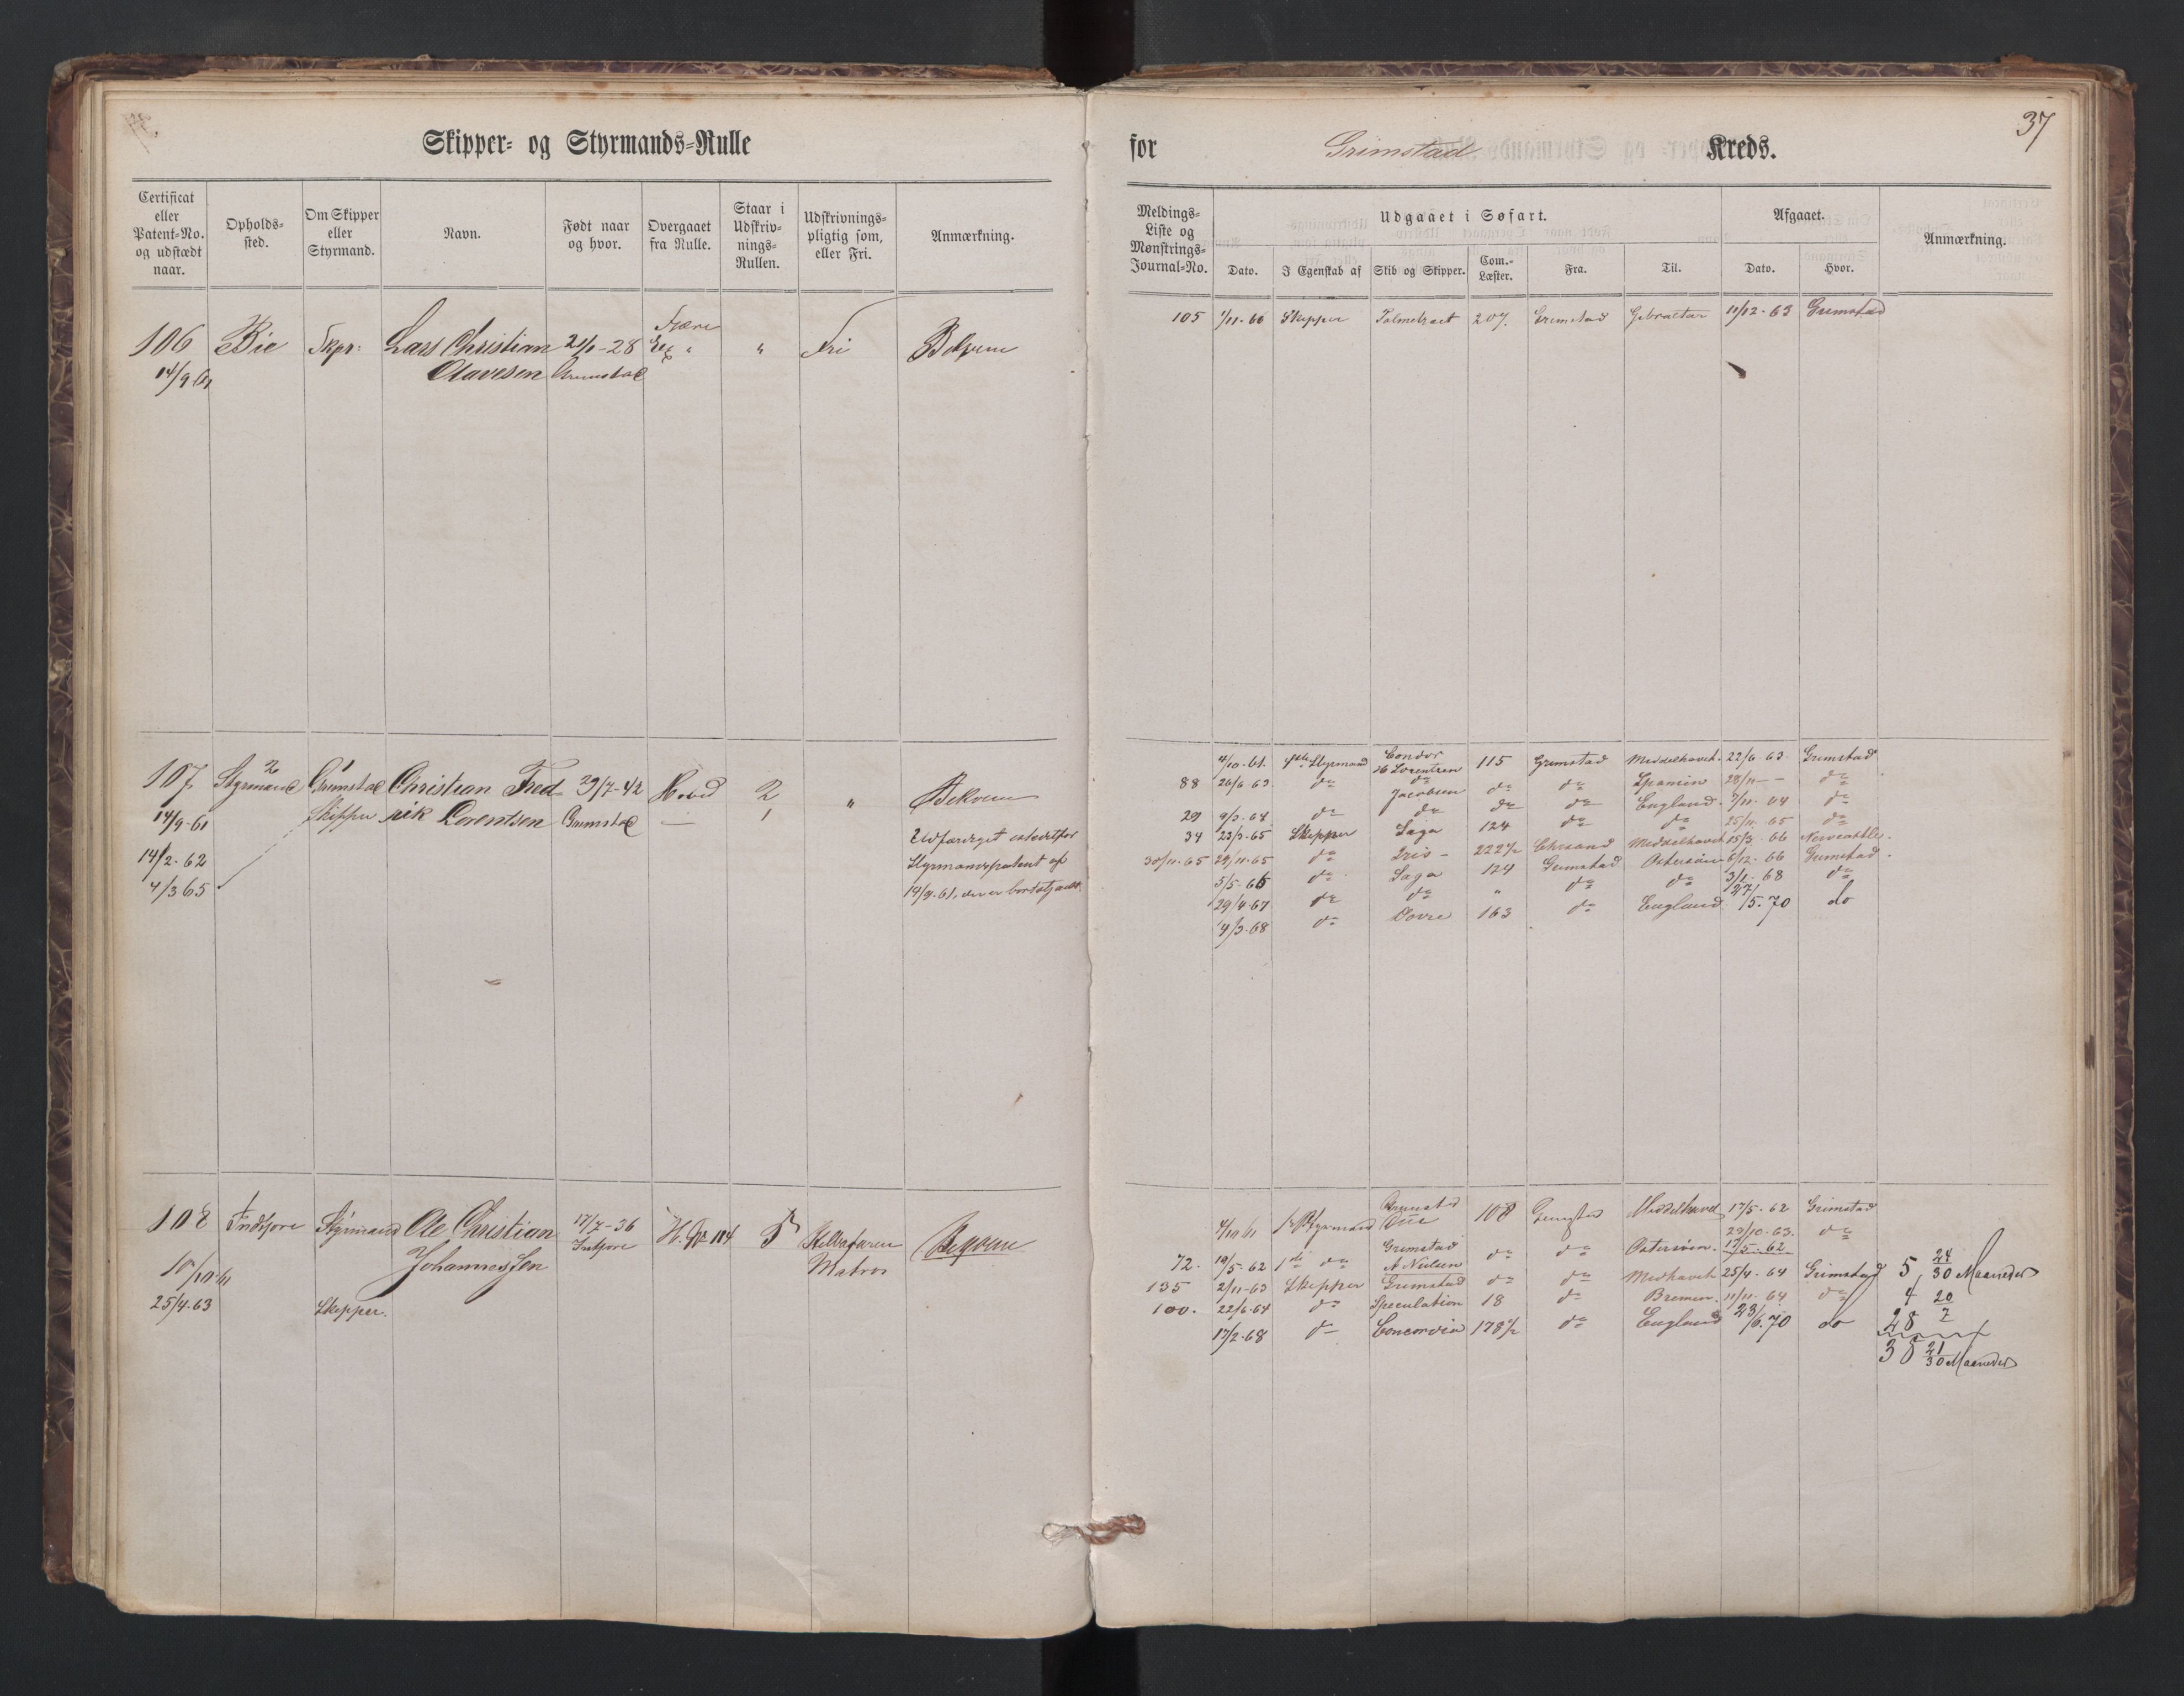 Skipper- og Styrmands-Rulle
for Grimstad Kreds.
37
Certificat eller Patent-No. og udstædt naar.
Opholds-sted.
Om Skipper eller Styrmand.
Navn.
Født naar og hvor.
Overgaaet fra Rulle.
Staar i Udskriv-nings-Rullen.
Udskrivnings-pligtig som, eller Fri.
Anmærkning.
Meldings-Liste og Mønstrings-Journal-No.
Udgaaet i Søfart.
Dato.
I Egenskab af
Skib og Skipper.
Com.-Læster.
Fra.
Til.
Afgaaet.
Dato.
Hvor.
Anmærkning.
106 Bie Skpr: Lars Christian 21/1-28 Fri
14/9 61 Olavesen Grimstad
105 1/11-60 Skipper 207. Grimstad Gibraltar 11/12-63 Grimstad
107 Styrmand Grimstad Christian Fred- 29/7-42 Hoved 2 " Bekvem
14/9-61 Skipper rik Lorentsen Grimstad 1
14/2-62
4/3 65
Udfærdiget istedetfor
Styrmandspatent af
14/9-61, der er bortskjædt.
4/10-61. 1ste Styrmand Condor 115 Grimstad Middelhavet 22/6 63 Grimstad
H Lorentzen
88 26/6 63 do do do do Spanien 28/11 - do
Jacobsen
29 9/3-64 do do do do England 7/11-64 do
34 23/3-65 Skipper Saga 124 do do 25/11-65 do
30/11-65 29/11-65 do Iris 222 1/2 Chrsand Middelhavet 15/3 66 Newcastle.
5/5-66 do Saga 124 Grimstad Østersøen 6/12-66 Grimstad
29/4-67 do do " do do 3/1-68 do
4/3-68 do Dovre 163 do England 27/5.70 do
108 Indfjore Styrmand Ole Christian 17/7-36 H. No 114 5
10/10 61 Johannessen
25/4-63 Skipper.
Matros
Beqvem
4/10 61 Styrmand 108 Grimstad Middelhavet 17/5-62 Grimstad
29/10-63. do
72. 19/5-62 1ste do Grimstad do do Østersøen. 17/5-62
A Nielsen
135 2/11-63 Skipper Grimstad do do Midhavet 25/4-64 Grimstad
100. 22/6-64 do Speculation 18 do Bremen. 11/11-64 do
17/2-68 do Concordia 178 1/2 do England 23/6.70 do
5 24/30 Maaneder
4 20
28 7
38 21/30 Maaneder